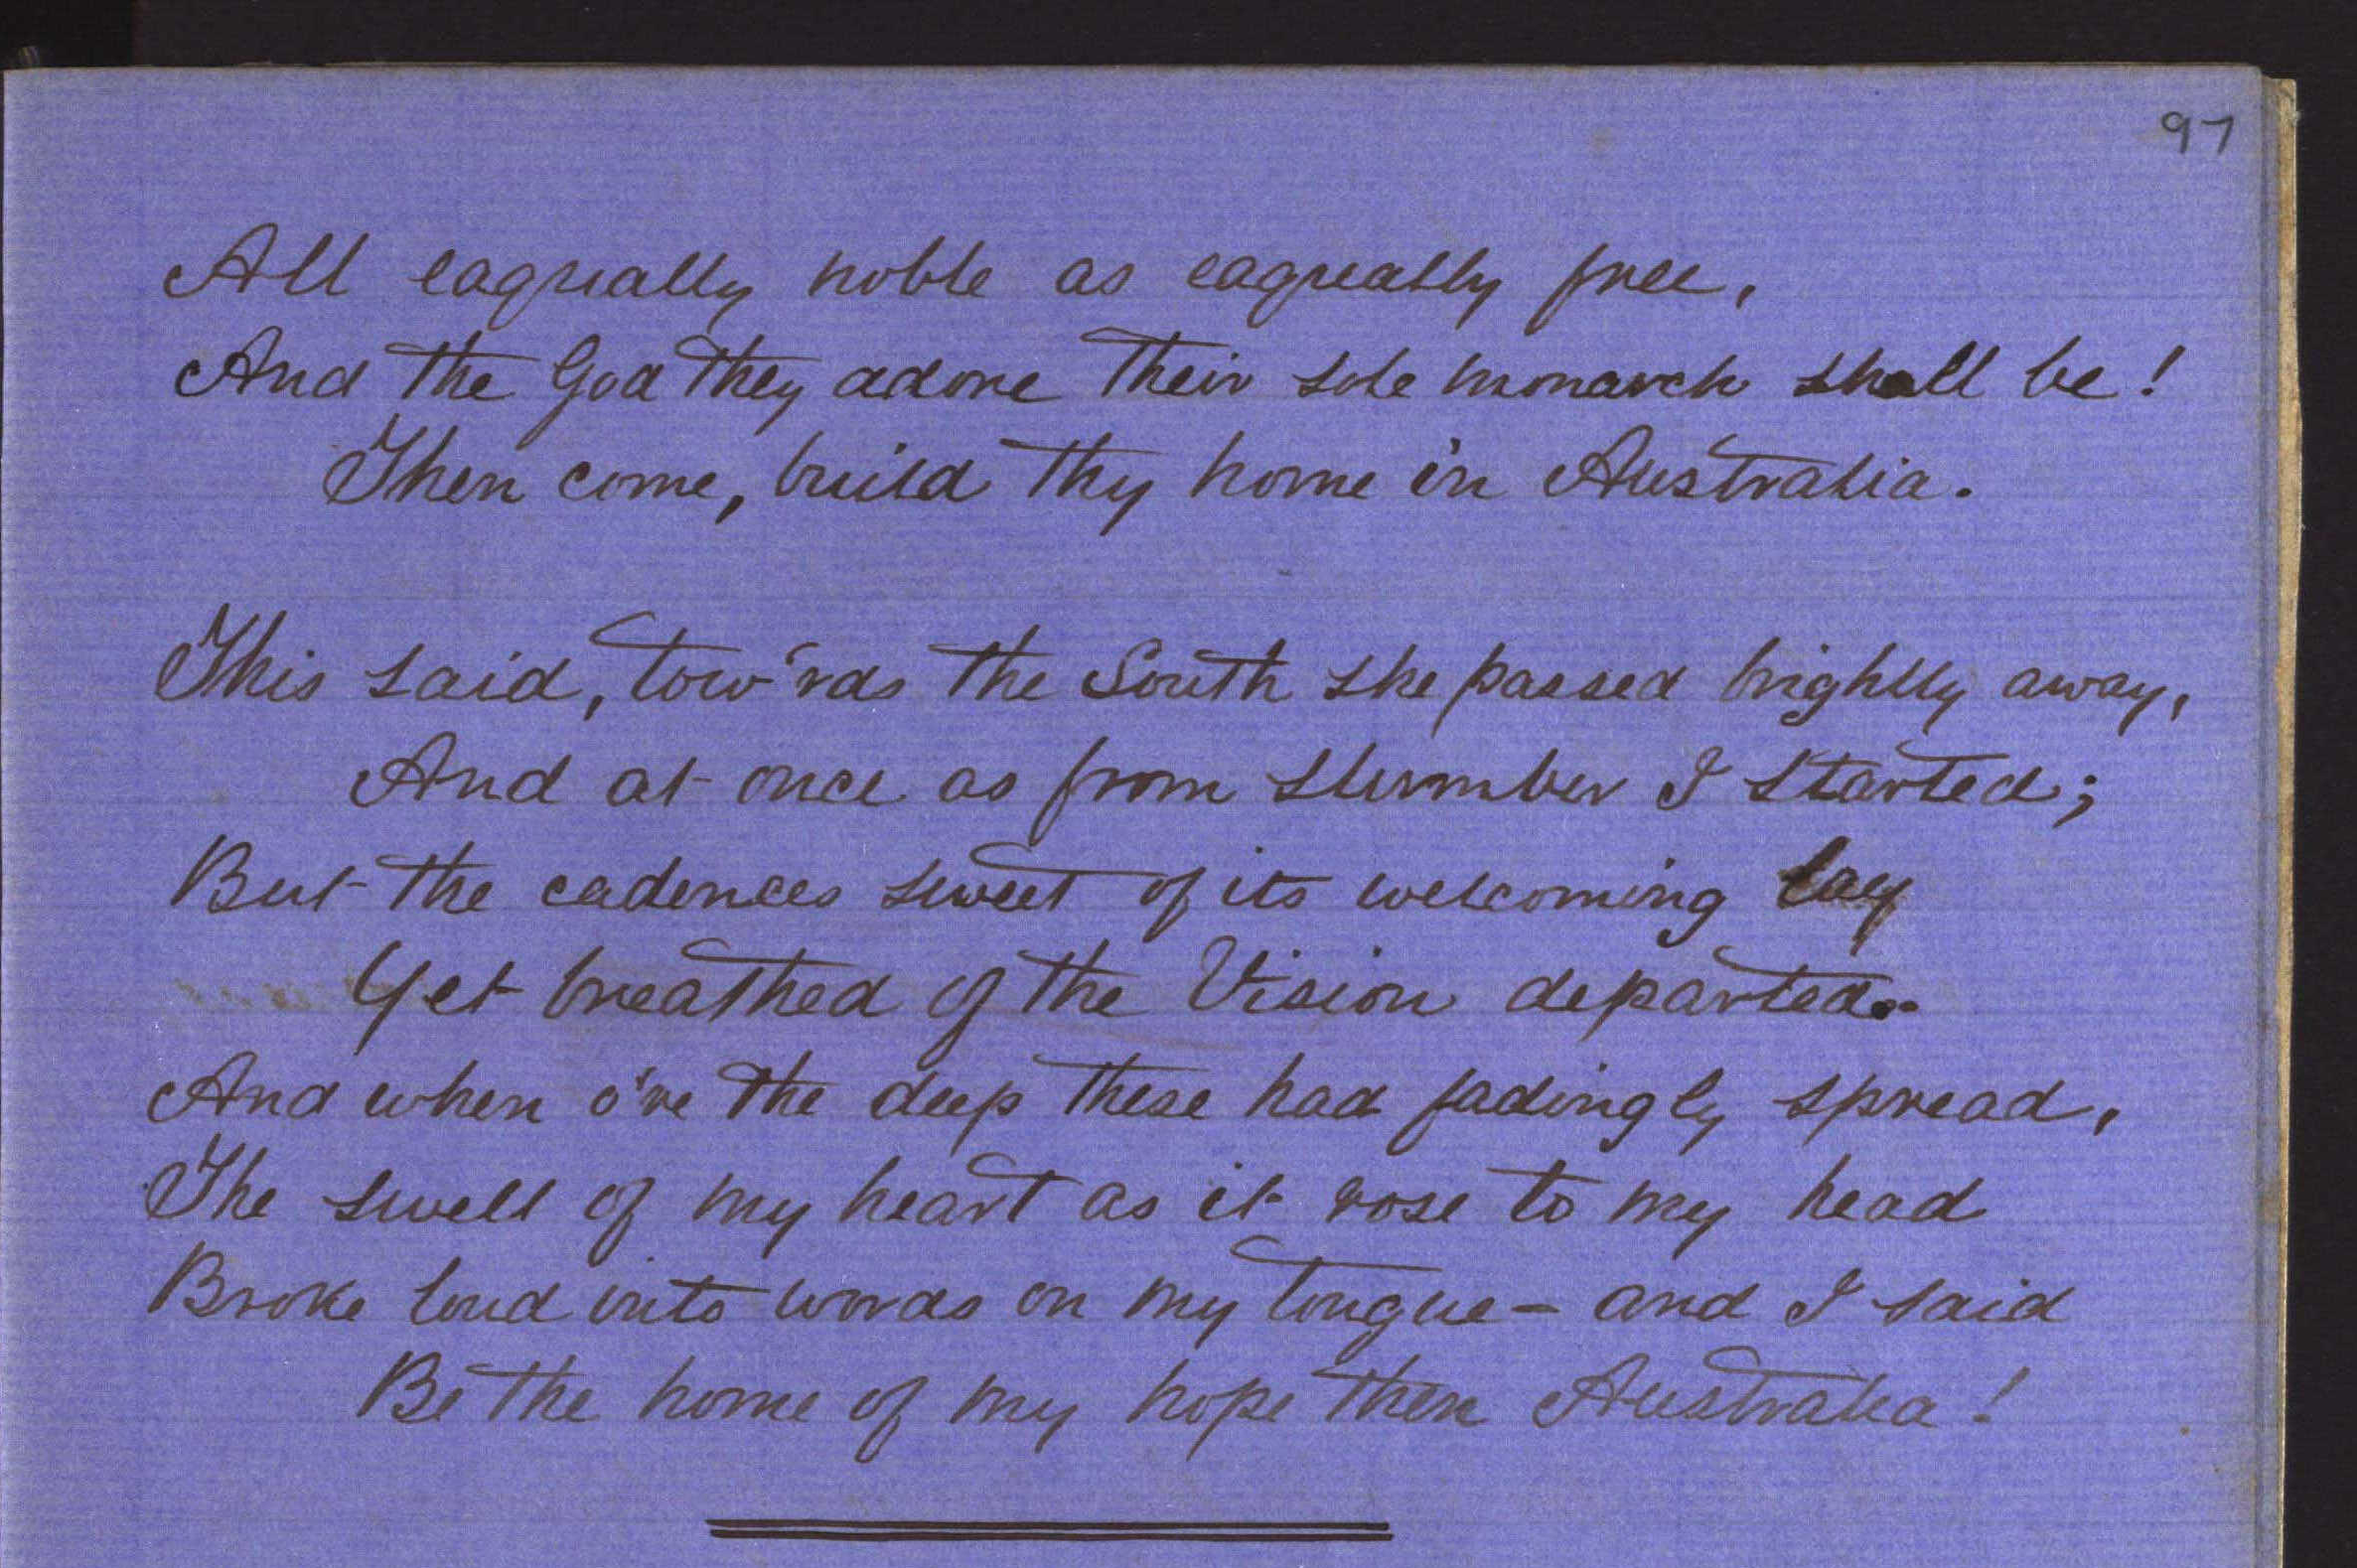 97
All eaqually noble as eaqueally free,
And the God they adore their sole monarch shall be!
Then come, build thy home in Australia.
This said, tow'rds the South she passed brightly away,
And at once as from slumber I started;
But the cadences sweet of its welcoming lay
Yet breathed of the Vision departed.
And when o're the deep these had fadingly spread,
The swell of my heart as it rose to my head
Broke loud into words on my tongue – and I said
Be the home of my hope then Australia!